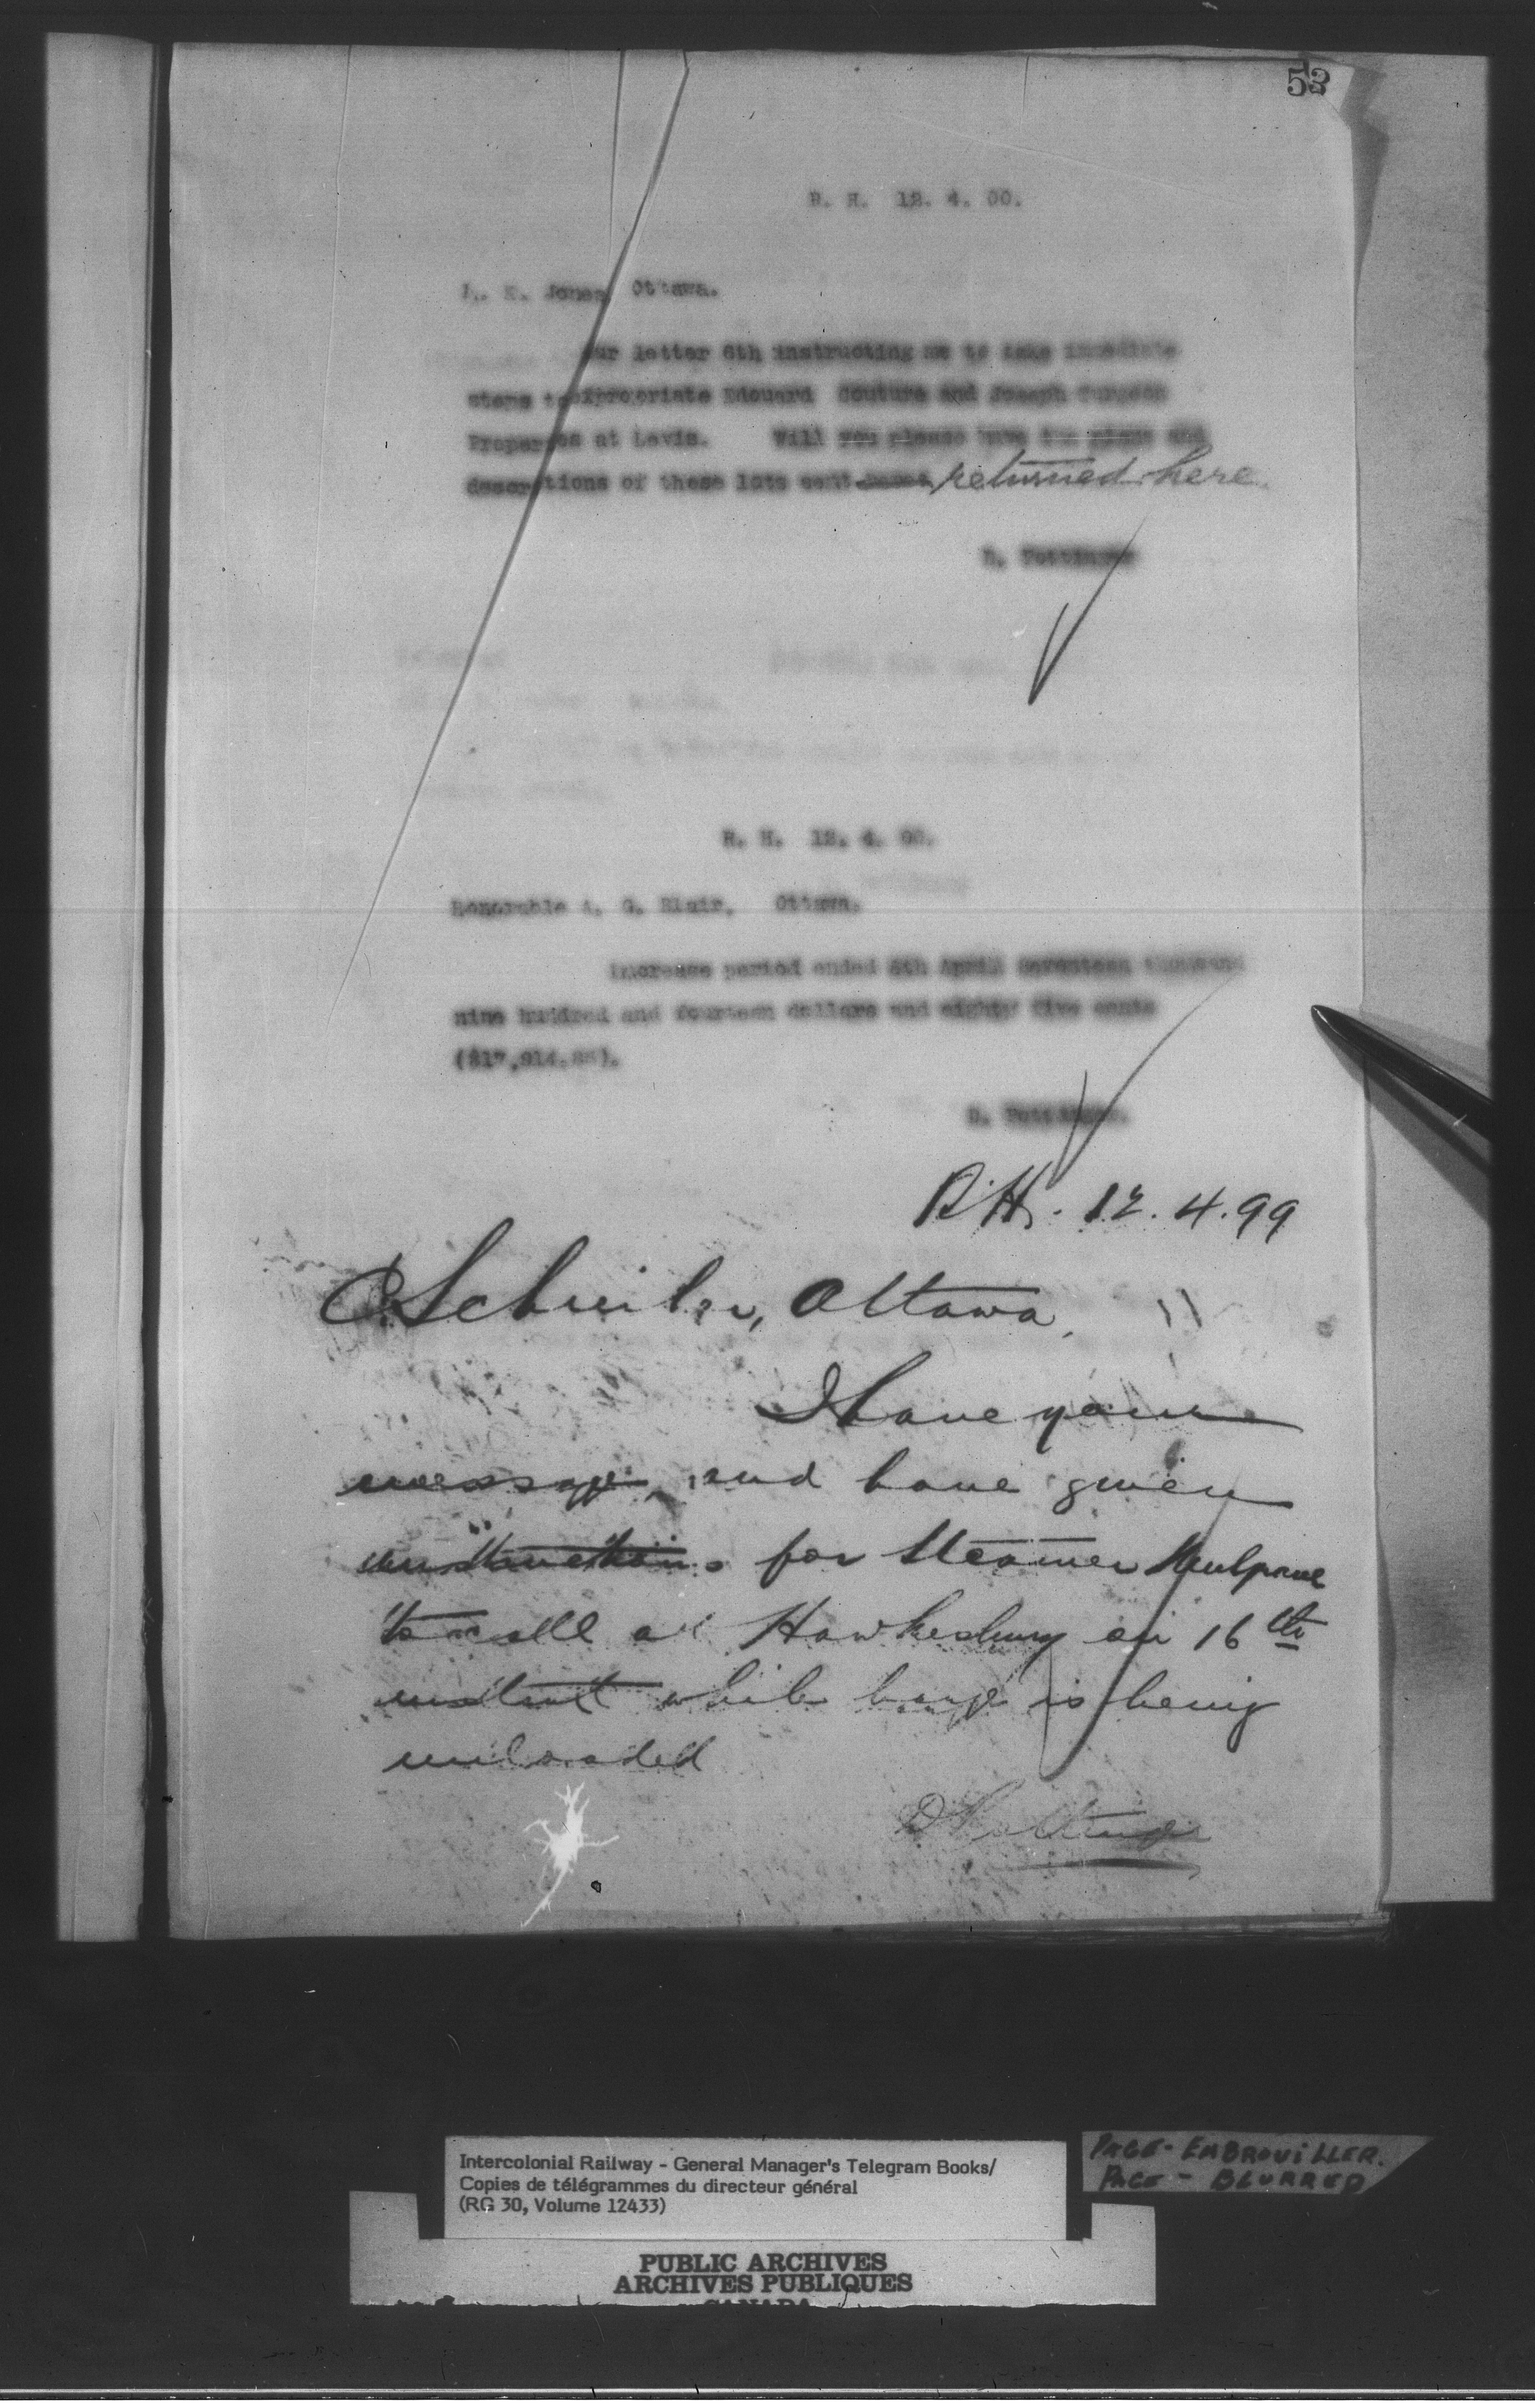 53
R. H. 12. 4. 00.
L. K. Jones, Ottawa.
Your letter 6th instructing me to take immediate
steps to expropriate Edouard Couture and Joseph Turgeon
Properties at Levis. Will you please have the plans and
descriptions of these lots sent returned here.
D. Pottinger
R. H. 12. 4. 00.
Honorable A. G. Blair, Ottawa.
Increase period ended 6th April seventeen thousand
nine hundred and fourteen dollars and eighty five cents
($17,914.85).
D. Pottinger.
R.H. 12.4.99
C Schreiber, Ottawa,
I have your
message, and have given
instructions for Steamer Mulgrave
to call at Hawkesbury on 16th
instant while barge is being
unloaded
D Pottinger
Intercolonial Railway - General Manager's Telegram Books/
Copies de télégrammes du directeur général
(RG 30, Volume 12433)
PAGE - EMBROUILLER.
PAGE - BLURRED
PUBLIC ARCHIVES
ARCHIVES PUBLIQUES
CANADA